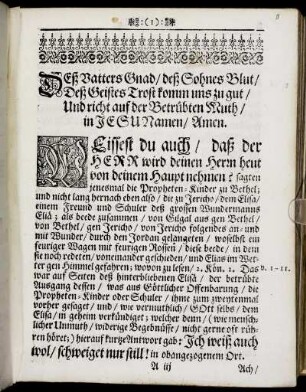 :(1):
Deß Vatters Gnad/ deß Sohnes Blut/
Deß Geistes Trost komm uns zu gut/
Und richt auf der Betrübten Muth/
in JESU Namen/ Amen.
Weissest du auch/ daß der
HERR wird deinen Herrn heut
von deinem Haupt nehmen? sagten
jenesmal die Propheten-Kinder zu Bethel;
und nicht lang hernach eben also/ die zu Jericho/ dem Elisa/
einem Freund und Schuler deß grossen Wundermanns
Eliä; als beede zusammen/ von Gilgal aus gen Bethel/
von Bethel/ gen Jericho/ von Jericho folgendes an- und
mit Wunder/ durch den Jordan gelangeten/ woselbst ein
feuriger Wagen mit feurigen Rossen/ diese beede/ in dem
sie noch redeten/ voneinander geschieden/ und Elias im Wet-
ter gen Himmel gefahren; wovon zu lesen/ 2. Kön. 2. Das
v. 1-11.
war auf Seiten deß hinterbliebenen Elisä/ der betrübte
Ausgang dessen/ was aus Göttlicher Offenbarung/ die
Propheten-Kinder oder Schuler/ ihme zum zweytenmal
vorher gesaget/ und/ wie vermuthlich/ GOtt selbst/ dem
Elisa/ in geheim verkündiget; welcher denn/ (wie mensch-
licher Unmuth/ widerige Begebnüsse/ nicht gerne oft rüh-
ren höret;) hierauf kurtze Antwort gab: Jch weiß auch
wol/ schweiget nur still! in obangezogenem Ort.
A iij
Ach/